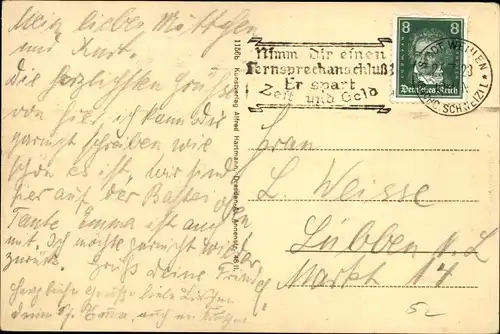 Mein liebes Muttchen
und Kurt.
Die herzlichsten Grüsse
von hier, ich kann Dir
garnicht schreiben wie
schön es ist, wir sind
hier auf der Bastei
Tante Emma ist auch
mit. Ich möchte garnicht wieder
zurück. Gruß Deine Frieda
Herzliche Grüße
116/b Kunstverlag Alfred Hartmann, Dresden-A., Annenstr. 48 II.
Nimm dir einen
Fernsprechanschluß
Er spart
Zeit und Geld
8 8
Deutsches Reich
STADT WEHLEN
(SÄCHS. SCHWEIZ)
An
L. Weisse
Lübben N.L.
Markt 14